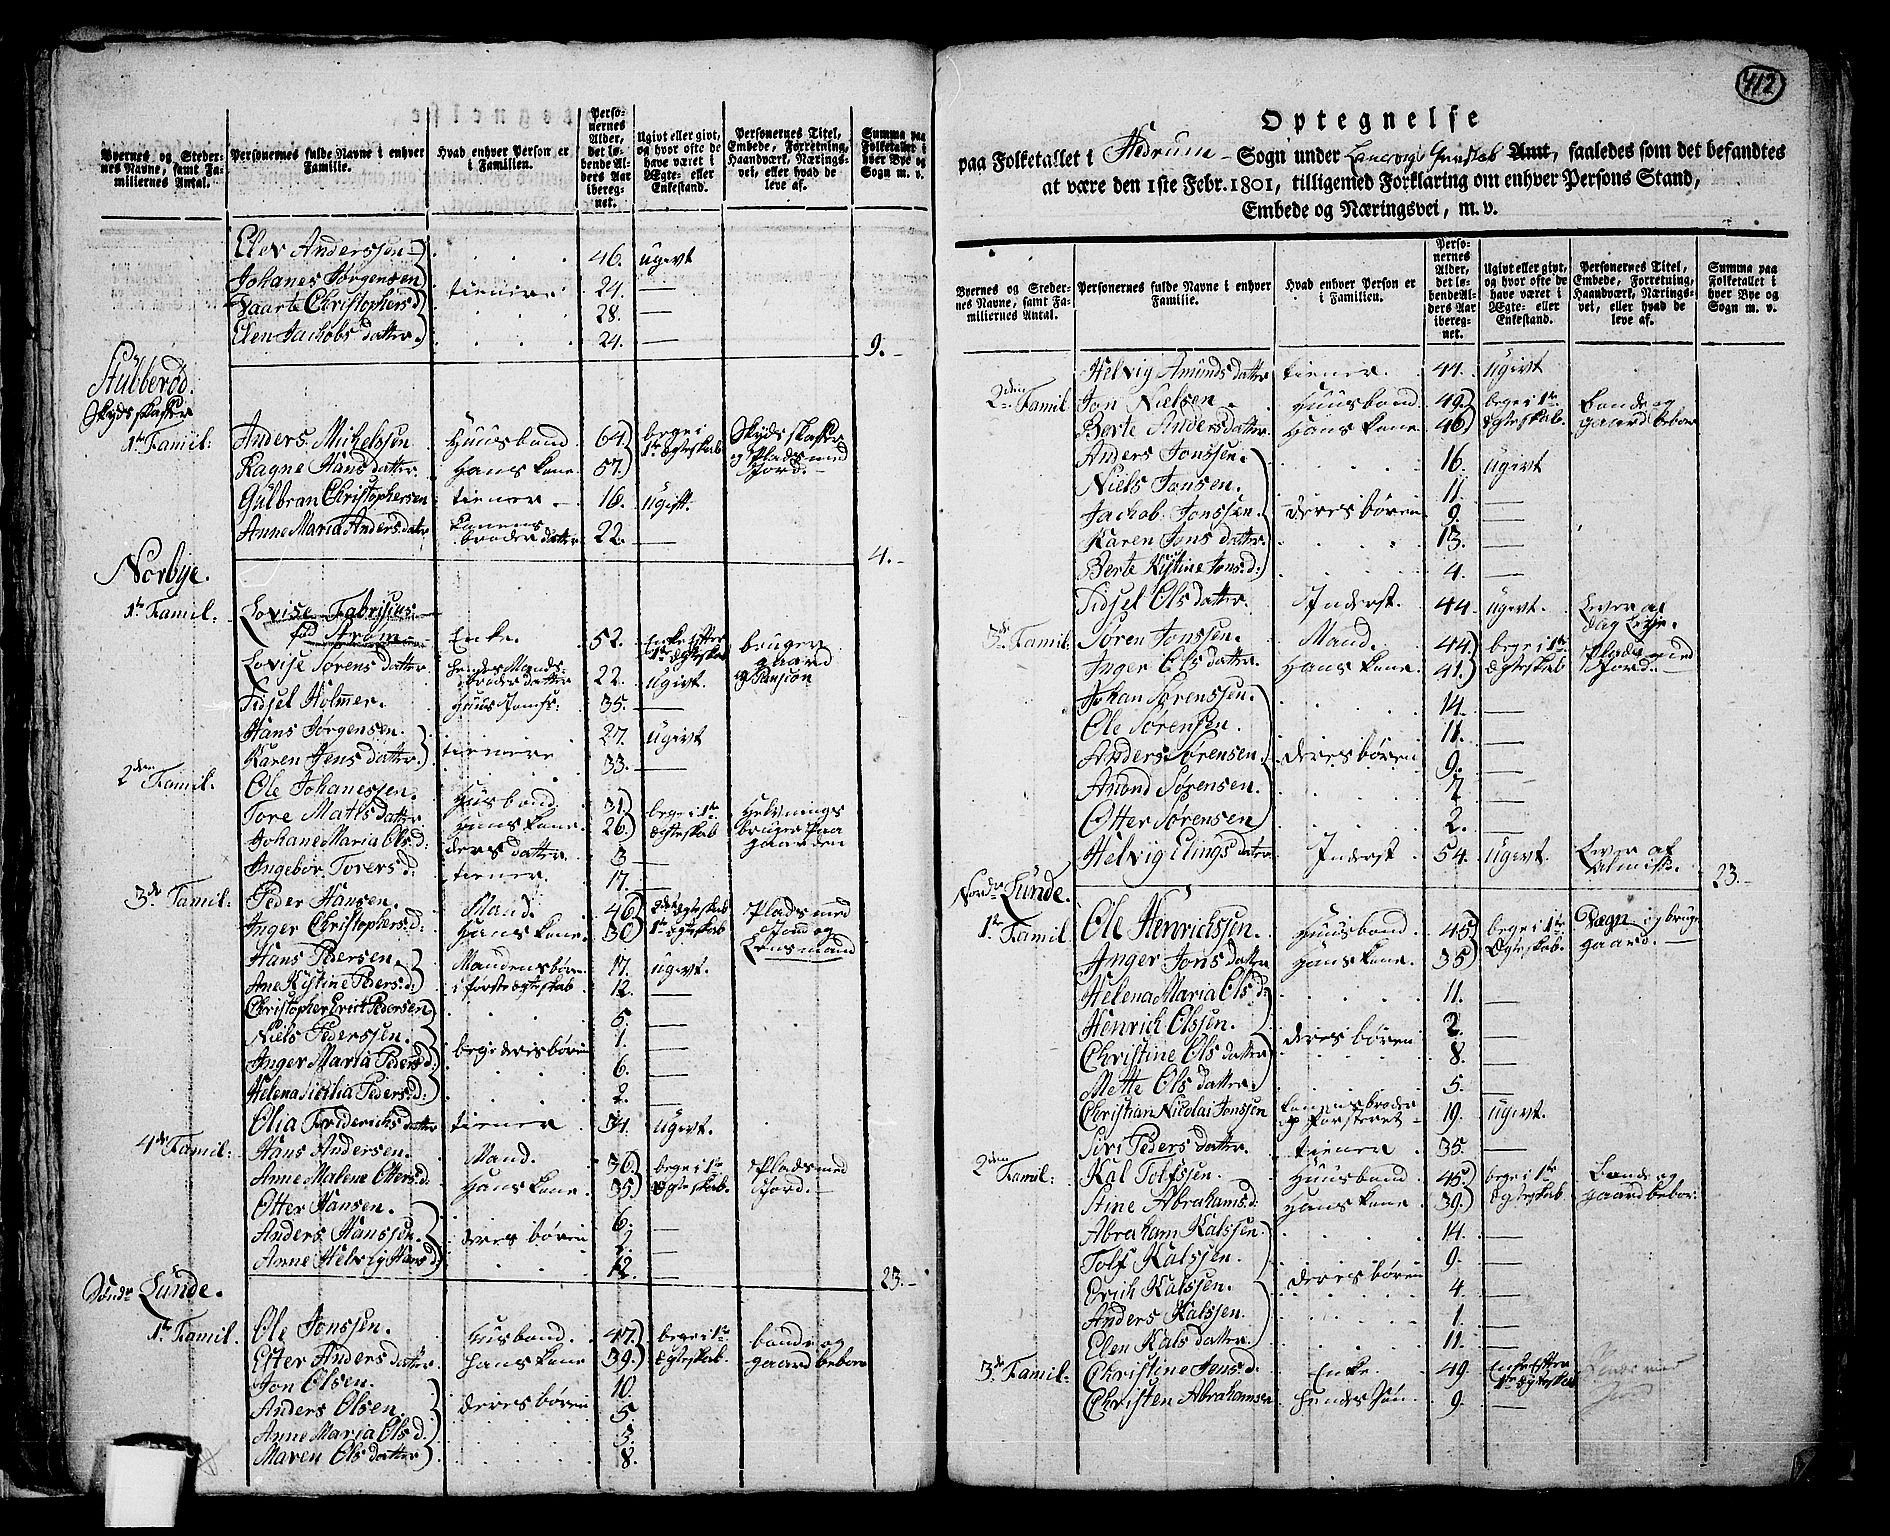 Byernes og Steder-
nes Navne, samt Fa-
miliernes Antal.
Personernes fulde Navne i enhver
Familie.
Hvad enhver Person er
i Familien.
Perso-
nernes
Alder,
det lø-
bende Al-
ders Aar
ibereg-
net.
Ugivt eller givt,
og hvor ofte de
have været i
Ægte- eller
Enkestand.
Personernes Titel,
Embede, Forretning,
Haandværk, Nærings-
vei, eller hvad de
leve af.
Summa paa
Folketallet i
hver Bye og
Sogn m. v.
Elev Anderssen 46. ugivt
Johanes Jørgensen tienere 24. —
Vaarte Christophersd 28. —
Elen Jachobs datter 24. — 9.
Stülberød.
Skydsskaffer
1te Famil: Anders Mikelssen Huusbond 64 begge i 1te Ægteskab Skydsskaffer
Ragne Hans datter Hans kone 57 og Plads med Jord.
Gülbran Christophersen tiener 16. ugift.
Anne Maria Anders datter konens broder datter 22. — 4.
Norbye.
1te Famil: Lovise Fabrisius
fød Strøm Enke. 52. Enke efter 1te Ægteskab bruger gaard og Pension
Lovise Sørens datter hendes Mands broder datter 22. ugivt.
Sidsel Holmer. Huus Jomfr: 35. —
Hans Jørgensen. tienere 27. ugivt
Karen Jens datter. 33. —
2den Famil. Ole Johanessen. Husbond. 31 begge i 1te Ægteskab Helvnings bruger paa gaarden
Tore Matis datter Hans kone. 26
Johane Maria Ols d: deres datter. 3 —
Ingebor Torers d: tiener. 17. —
3de Famil: Peder Hansen. Mand. 46 2det Ægteskab Plads med Jord og Lensmand
Inger Christophers d: Hans kone. 30 1te Ægteskab
Hans Pedersen. Mandens børn 17. ugivt.
Ane Kistine Peders d: i første ægteskab 12. —
Christopher Erich Pedersen 5. —
Niels Pederssen. begge deres børn 1. —
Inger Maria Peders d: 6. —
Helena Sicilia Peders d: 2. —
Olia Friderichs datter tiener 34. ugivt.
4de Famil: Hans Andersen. Mand. 36 begge i 1te Ægteskab. Plads med Jord.
Anne Malene Otters d: Hans kone. 35
Otter Hansen. 6. —
Anders Hanssen. deres børn 2. —
Anne Helvig Hans d: 12. — 23.
Sønder Lunde.
1te Famil. Ole Jonssen. Husbond. 47 begge i 1te Ægteskab. bonde og gaard beboer
Ester Anders datter. Hans kone 39
Jon Olsen. 10.
Anders Olsen. deres børn 5.
Anne Maria Ols d. 3.
Maren Ols datter 8.
412
Optegnelse
paa Folketallet i Hedrum Sogn under Laurvigs Grevskab Amt, saaledes som det befandtes
at være den 1ste Febr. 1801, tilligemed Forklaring om enhver Persons Stand,
Embede og Næringsvei, m. v.
Byernes og Steder-
nes Navne, samt Fa-
miliernes Antal.
Personernes fulde Navne i enhver
Familie.
Hvad enhver Person er
i Familien.
Perso-
nernes
Alder,
det lø-
bende Al-
ders Aar
ibereg-
net.
Ugivt eller givt,
og hvor ofte de
have været i
Ægte- eller
Enkestand.
Personernes Titel,
Embede, Forretning,
Haandværk, Nærings-
vei, eller hvad de
leve af.
Summa paa
Folketallet i
hver Bye og
Sogn m. v.
Helvig Amünds datter tiener. 44. ugivt
2den Famil Jon Nielsen Huusbond 49 begge i 1te Ægteskab. Bonde og gaard beboer
Berte Anders datter. Hans kone 46
Anders Jonssen. 16. ugivt
Niels Jonsen. 11. —
Jachob Jonssen. deres børn 9. —
Karen Jons datter 13. —
Berte Kistine Jons d: 4. —
Sidsel Ols datter. Inderst. 44. ugivt. Lever af dag Leye.
3de Famil: Søren Jonssen. Mand. 44. begge i 1te Ægteskab Plads med Jord.
Inger Ols datter. Hans kone 41.
Johan Sørenssen. 14. —
Ole Sørensen. 11. —
Anders Sørensen. deres børn 9. —
Amond Sørensen 7 —
Otter Sørensen 2. —
Helvig Elings datter Inderst 54. ugivt. Lever af almisse. 23.
Nordr Lunde.
1te Famil Ole Henrichssen. Huusbond. 45 begge i 1te Ægteskab. og bruger gaard.
Inger Jons datter Hans kone. 35
Helena Maria Ols d: 11. —
Henrich Olssen. deres børn 2. —
Christine Ols datter 8. —
Mette Ols datter. 5. —
Christian Nicolai Jonssen konens broder og Forsteret 19. ugivt.
Siri Peders datter. tiener 35. —
2den Famil: Kal Tolfssen. Huusbond 45. begge i 1te Ægteskab Bonde og gaard beboer
Stine Abrahams d: Hans kone. 39.
Abraham Kalssen. 14. —
Tolf Kalssen. 9. —
Erich Kalssen. deres børn 4. —
Anders Kalssen. 1. —
Elen Kals datter. 11. —
3de Famil: Christine Jons d. Enke 49. Enke efter 1te Ægteskab
Christen Abrahamsen hendes Søn. 9. — Jord